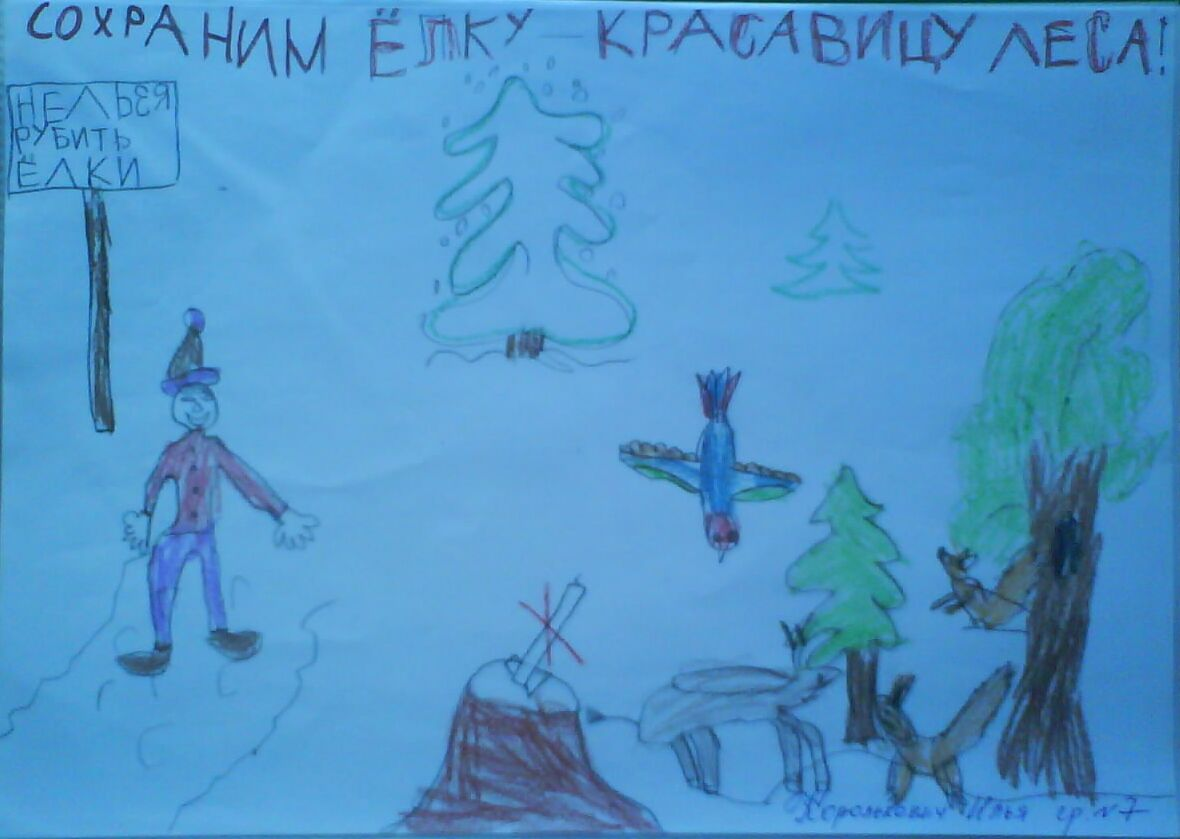 СОХРАНИМ ЁЛКУ - КРАСАВИЦУ ЛЕСА!
НЕЛЬЗЯ
РУБИТЬ
ЁЛКИ
Илья гр. №7